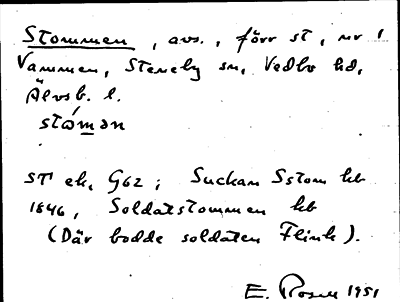 Stommen, avs., förr st, nr 1
Vammen, Steneby sn, Vedbo hd,
Älvsb. l.
stómən
ST ek. G62; Suckan Sstom hb
1846, Soldatstommen hb
(Där bodde soldaten Flink).
E. Rosell 1951